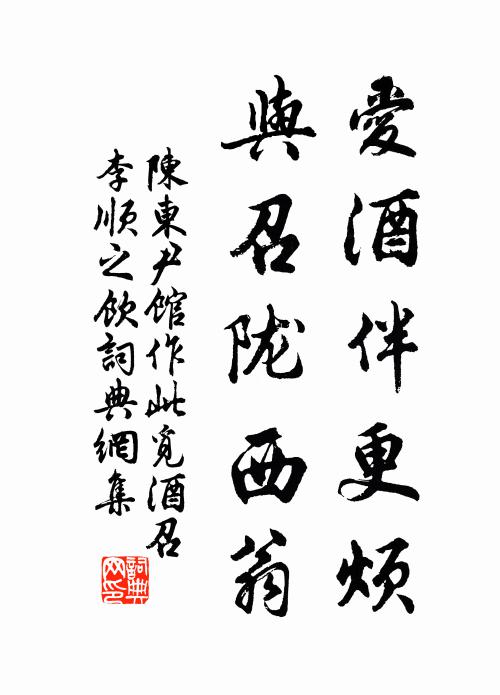 愛酒伴更煩
與召陇西翁
陳東尹館作此覓酒召
李順之飲詞典網集
詞典网印